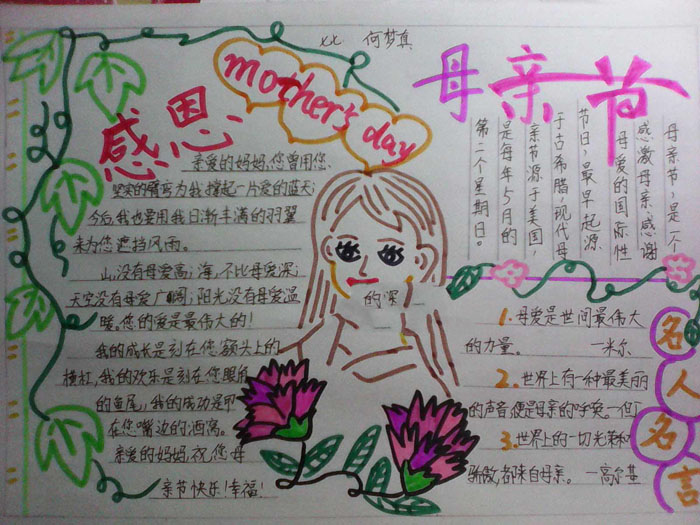 何梦真
mother's day
感恩
母亲节
亲爱的妈妈,您曾用您
坚实的臂弯为我撑起一片爱的蓝天;
今后,我也要用我日渐丰满的羽翼
来为您遮挡风雨。
山,没有母爱高;海,不比母爱深;
天空没有母爱广阔;阳光没有母爱温
暖。您的爱是最伟大的!
我的成长是刻在您额头上的
横杠,我的欢乐是刻在您眼角
的鱼尾,我的成功是
在您嘴边的酒窝。
亲爱的妈妈,祝您母
亲节快乐!幸福!
的深
母亲节,是一个
感激母亲、感谢
母爱的国际性
节日,最早起源
于古希腊;现代母
亲节源于美国,
是每年5月的
第二个星期日。
名人名言
1.母爱是世间最伟大
的力量。 —米尔
2.世界上有一种最美丽
的声音,便是母亲的呼唤。—但丁
3.世界上的一切光荣和
骄傲,都来自母亲。—高尔基